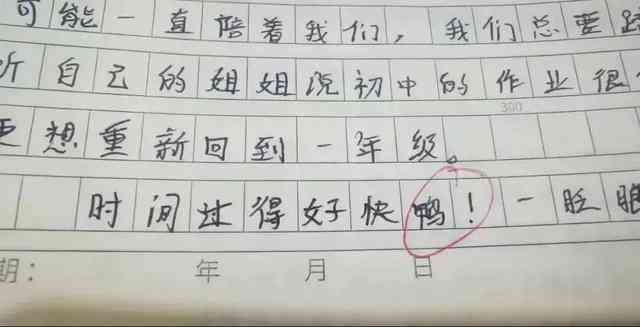 可能一直陪着我们，我们总要
听自己的姐姐说初中的作业很
更想重新回到一年级。
300
时间过得好快鸭！一眨眼
期： 年 月 日